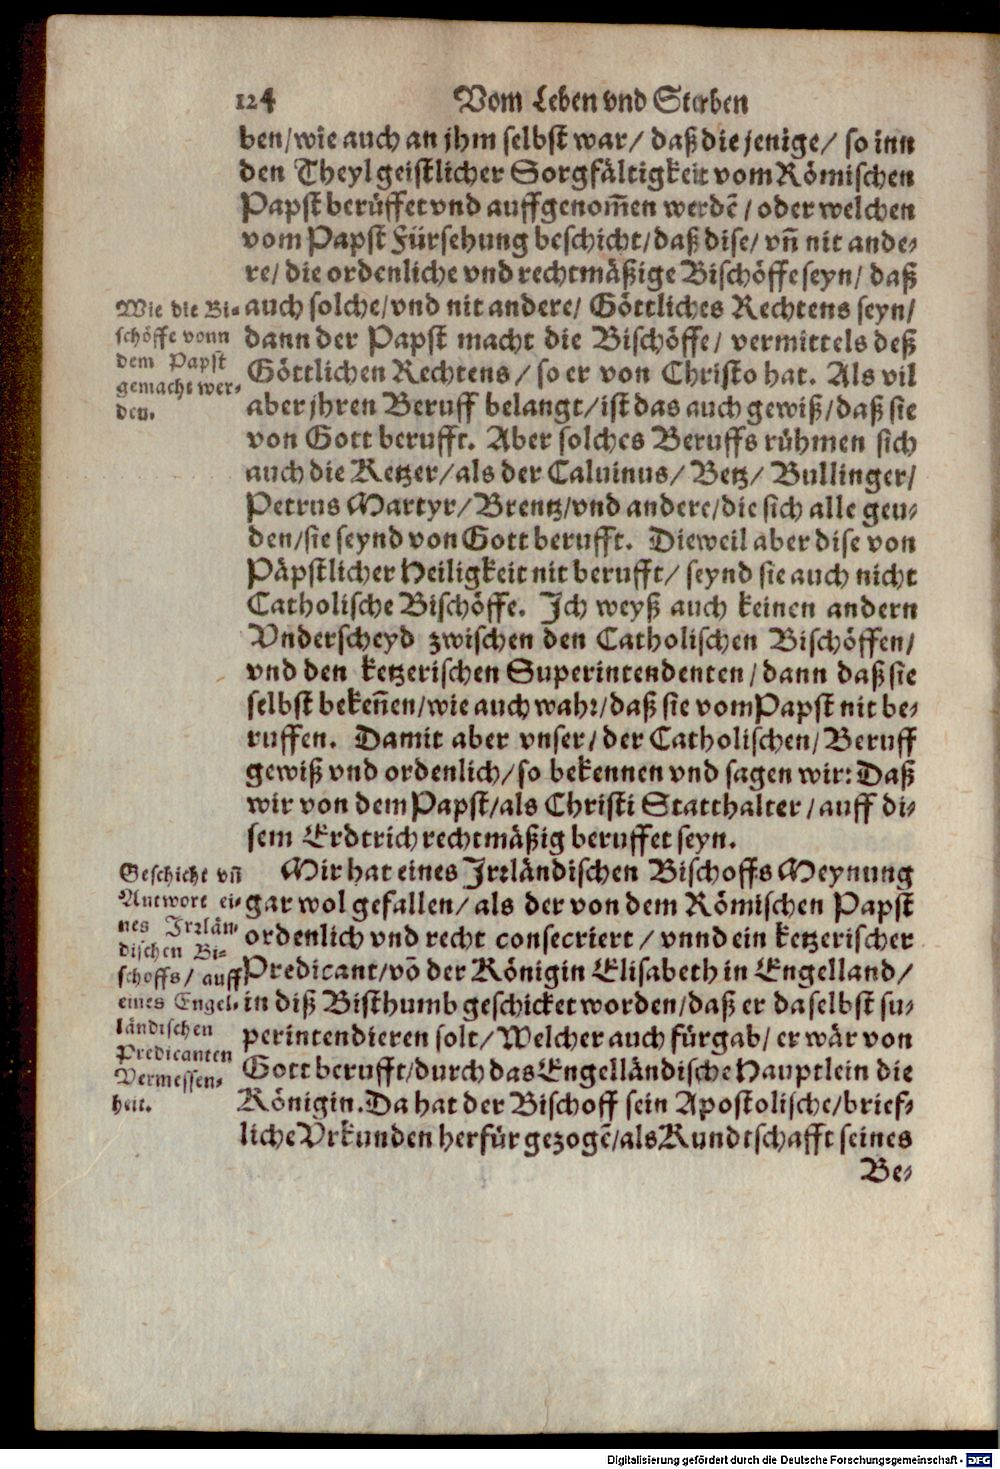 124 Vom Leben vnd Sterben
ben/wie auch an jhm selbst war/ daß die jenige/ so inn
den Theyl geistlicher Sorgfältigkeit vom Römischen
Papst berüffet vnd auffgenom̃en werdẽ/ oder welchen
vom Papst Fürsehung beschicht/daß dise/ vñ nit ande-
re/ die ordenliche vnd rechtmäßige Bischöffe seyn/ daß
auch solche/vnd nit andere/ Göttliches Rechtens seyn/
dann der Papst macht die Bischöffe/ vermittels deß
Göttlichen Rechtens/ so er von Christo hat. Als vil
aber jhren Beruff belangt/ist das auch gewiß/daß sie
von Gott berufft. Aber solches Beruffs rühmen sich
auch die Ketzer/als der Caluinus/ Betz/ Bullinger/
Petrus Martyr/ Brentz/vnd andere/die sich alle geu-
den/sie seynd von Gott berufft. Dieweil aber dise von
Päpstlicher Heiligkeit nit berufft/ seynd sie auch nicht
Catholische Bischöffe. Ich weyß auch keinen andern
Vnderscheyd zwischen den Catholischen Bischöffen/
vnd den ketzerischen Superintendenten/dann daß sie
selbst bekeñen/wie auch wahr/daß sie vom Papst nit be-
ruffen. Damit aber vnser/der Catholischen/Beruff
gewiß vnd ordenlich/so bekennen vnd sagen wir: Daß
wir von dem Papst/als Christi Statthalter/auff di-
sem Erdtrich rechtmäßig beruffet seyn.
Mir hat eines Irrländischen Bischoffs Meynung
gar wol gefallen/ als der von dem Römischen Papst
ordenlich vnd recht consecriert/ vnnd ein ketzerischer
Predicant/võ der Königin Elisabeth in Engelland/
in diß Bisthumb geschicket worden/daß er daselbst su-
perintendieren solt/ Welcher auch fürgab/ er wär von
Gott berufft/durch das Engelländische Hauptlein die
Königin. Da hat der Bischoff sein Apostolische/brief-
liche Vrkunden herfür gezogẽ/als Kundtschafft seines
Be-
Wie die Bi-
schöffe vonn
dem Papst
gemacht wer-
den.
Geschicht vñ
Antwort ei-
nes Irrlän-
dischen Bi-
schoffs/ auff
eines Engel-
ländischen
Predicanten
Vermessen-
heit.
Digitalisierung gefördert durch die Deutsche Forschungsgemeinschaft - DFG